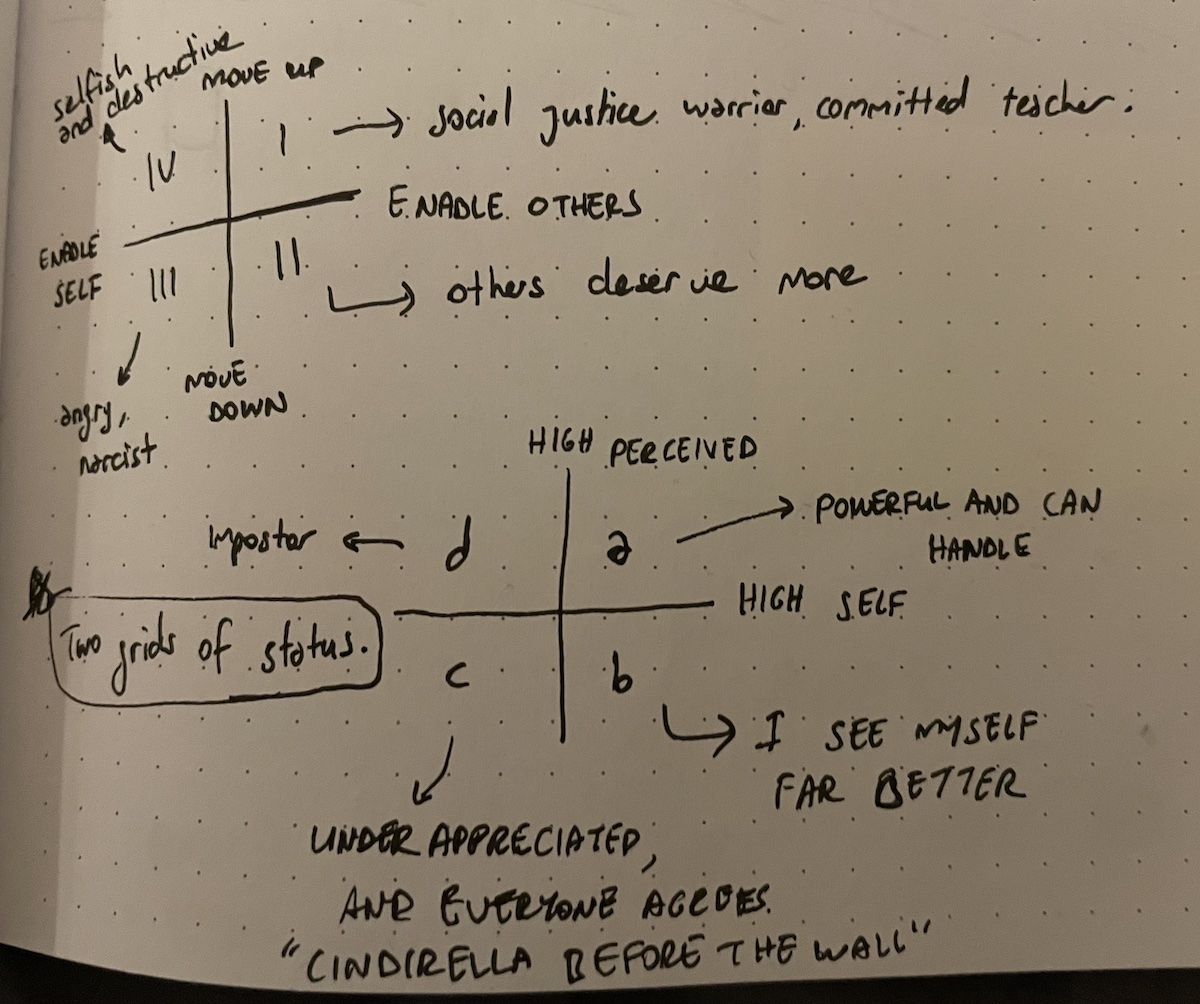 selfish
and destructive
MOVE UP
IV
I
social justice warrior, committed teacher.
ENADLE OTHERS
ENADLE
SELF
III
II
others deserve more
MOVE
DOWN
angry,
narcist
HIGH PERCEIVED
Impostor
d
a
POWERFUL AND CAN
HANDLE
HIGH SELF
Two grids of status.
c
b
I SEE MYSELF
FAR BETTER
UNDER APPRECIATED,
AND EVERYONE AGREES.
"CINDIRELLA BEFORE THE WALL"